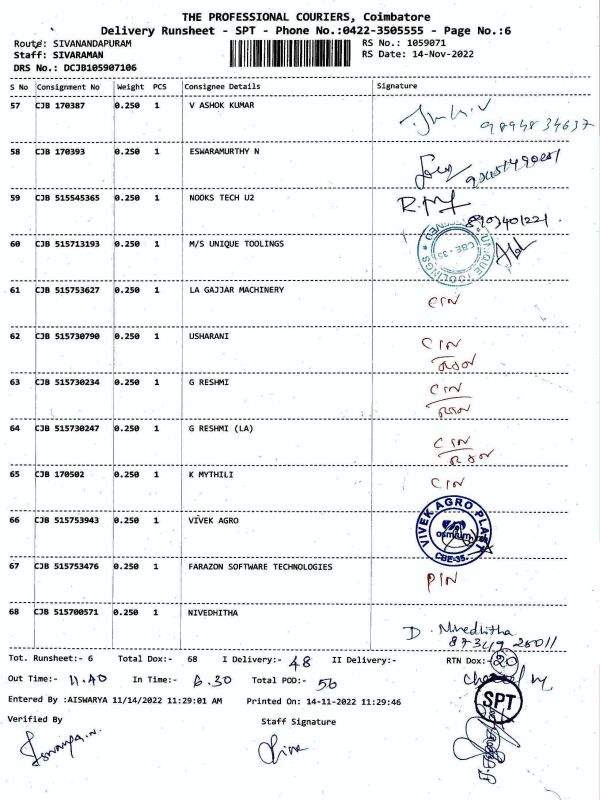 THE PROFESSIONAL COURIERS, Coimbatore
Delivery Runsheet - SPT - Phone No.:0422-3505555 - Page No.:6
Route: SIVANANDAPURAM RS No.: 1059071
Staff: SIVARAMAN RS Date: 14-Nov-2022
DRS No.: DCJB105907106
S No Consignment No Weight PCS Consignee Details Signature
57 CJB 170387 0.250 1 V ASHOK KUMAR
9894834637
58 CJB 170393 0.250 1 ESWARAMURTHY N
59 CJB 515545365 0.250 1 NOOKS TECH U2
8903401221.
60 CJB 515713193 0.250 1 M/S UNIQUE TOOLINGS
UNIQUE TOOLINGS
CBE - 35
61 CJB 515753627 0.250 1 LA GAJJAR MACHINERY CIN
62 CJB 515730790 0.250 1 USHARANI CIN
63 CJB 515730234 0.250 1 G RESHMI CIN
64 CJB 515730247 0.250 1 G RESHMI (LA) CIN
65 CJB 170502 0.250 1 K MYTHILI CIN
66 CJB 515753943 0.250 1 VIVEK AGRO
VIVEK AGRO PLAST
CBE-35.
67 CJB 515753476 0.250 1 FARAZON SOFTWARE TECHNOLOGIES PIN
68 CJB 515700571 0.250 1 NIVEDHITHA
D. Nivedhitha
Tot. Runsheet:- 6 Total Dox:- 68 I Delivery:- 48 II Delivery:- RTN Dox:- 20
Out Time:- 11.40 In Time:- 6.30 Total POD:- 56
Entered By :AISWARYA 11/14/2022 11:29:01 AM Printed On: 14-11-2022 11:29:46
SPT
Verified By Staff Signature